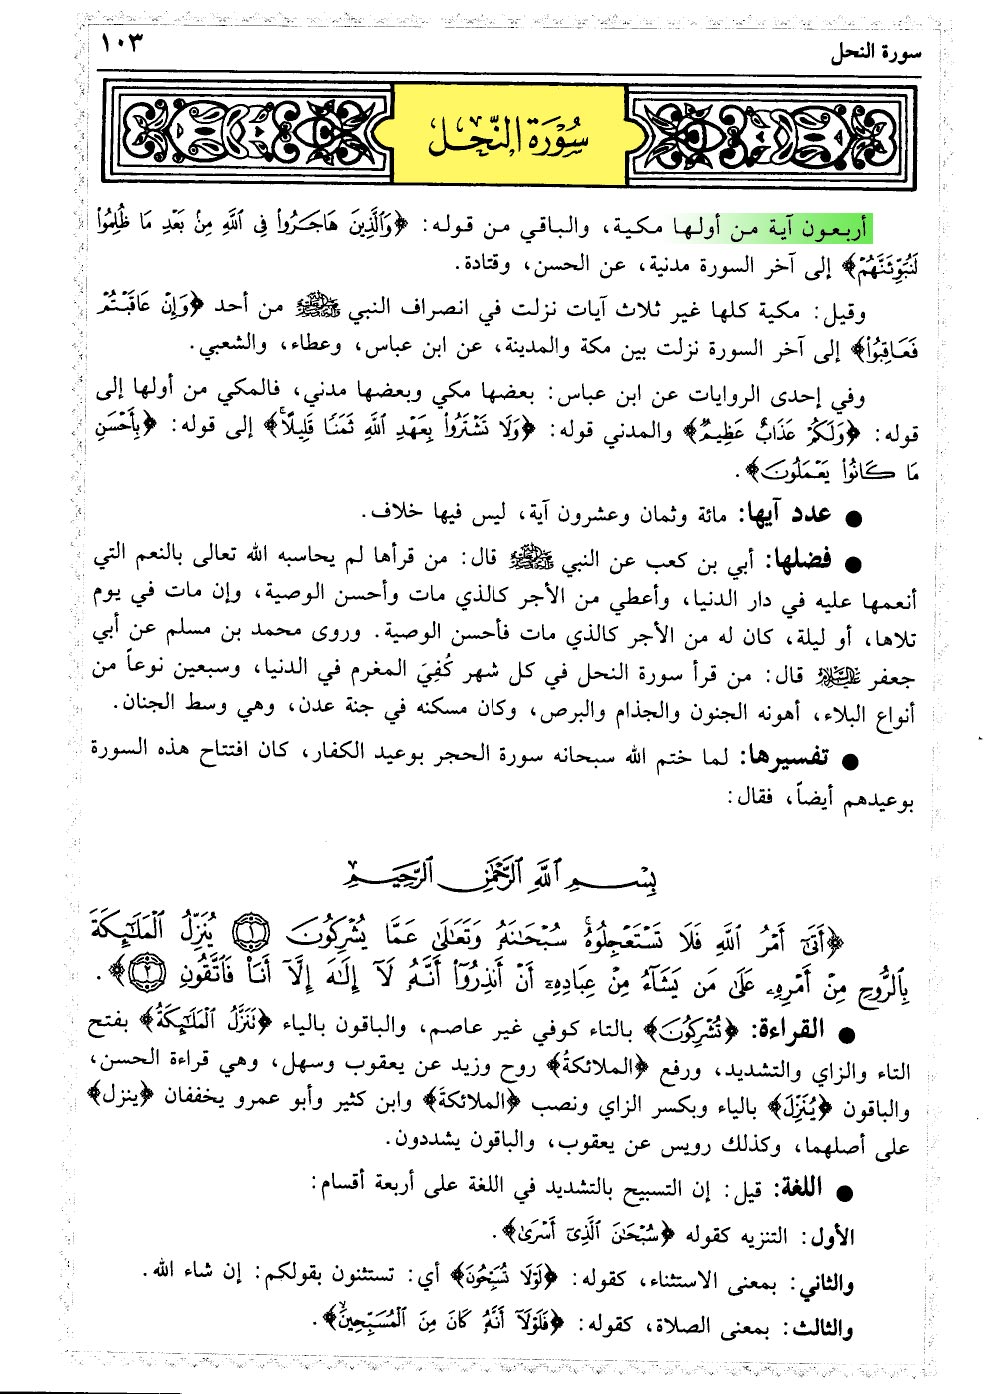 سورة النحل
١٠٣
سُورَةُ النَّحْلِ
أربعون آية من أولها مكية، والباقي من قوله: ﴿وَالَّذِينَ هَاجَرُوا فِي اللَّهِ مِنْ بَعْدِ مَا ظُلِمُوا
لَنُبَوِّئَنَّهُمْ﴾ إلى آخر السورة مدنية، عن الحسن، وقتادة.
وقيل: مكية كلها غير ثلاث آيات نزلت في انصراف النبي ﷺ من أحد ﴿وَإِنْ عَاقَبْتُمْ
فَعَاقِبُوا﴾ إلى آخر السورة نزلت بين مكة والمدينة، عن ابن عباس، وعطاء، والشعبي.
وفي إحدى الروايات عن ابن عباس: بعضها مكي وبعضها مدني، فالمكي من أولها إلى
قوله: ﴿وَلَكُمْ عَذَابٌ عَظِيمٌ﴾ والمدني قوله: ﴿وَلَا تَشْتَرُوا بِعَهْدِ اللَّهِ ثَمَنًا قَلِيلًا﴾ إلى قوله: ﴿بِأَحْسَنِ
مَا كَانُوا يَعْمَلُونَ﴾.
● عدد آيها: مائة وثمان وعشرون آية، ليس فيها خلاف.
● فضلها: أبي بن كعب عن النبي ﷺ قال: من قرأها لم يحاسبه الله تعالى بالنعم التي
أنعمها عليه في دار الدنيا، وأعطي من الأجر كالذي مات وأحسن الوصية، وإن مات في يوم
تلاها، أو ليلة، كان له من الأجر كالذي مات فأحسن الوصية. وروى محمد بن مسلم عن أبي
جعفر عليه السلام قال: من قرأ سورة النحل في كل شهر كُفِيَ المغرم في الدنيا، وسبعين نوعاً من
أنواع البلاء، أهونه الجنون والجذام والبرص، وكان مسكنه في جنة عدن، وهي وسط الجنان.
● تفسيرها: لما ختم الله سبحانه سورة الحجر بوعيد الكفار، كان افتتاح هذه السورة
بوعيدهم أيضاً، فقال:
بِسْمِ اللَّهِ الرَّحْمَٰنِ الرَّحِيمِ
﴿أَتَىٰ أَمْرُ اللَّهِ فَلَا تَسْتَعْجِلُوهُ سُبْحَانَهُ وَتَعَالَىٰ عَمَّا يُشْرِكُونَ ۝١ يُنَزِّلُ الْمَلَائِكَةَ
بِالرُّوحِ مِنْ أَمْرِهِ عَلَىٰ مَن يَشَاءُ مِنْ عِبَادِهِ أَنْ أَنذِرُوا أَنَّهُ لَا إِلَٰهَ إِلَّا أَنَا فَاتَّقُونِ ۝٢﴾.
● القراءة: ﴿تُشْرِكُونَ﴾ بالتاء كوفي غير عاصم، والباقون بالياء ﴿تَنَزَّلُ الْمَلَائِكَةُ﴾ بفتح
التاء والزاي والتشديد، ورفع ﴿الملائكةُ﴾ روح وزيد عن يعقوب وسهل، وهي قراءة الحسن،
والباقون ﴿يُنَزِّلَ﴾ بالياء وبكسر الزاي ونصب ﴿الملائكةَ﴾ وابن كثير وأبو عمرو يخففان ﴿ينزل﴾
على أصلهما، وكذلك رويس عن يعقوب، والباقون يشددون.
● اللغة: قيل: إن التسبيح بالتشديد في اللغة على أربعة أقسام:
الأول: التنزيه كقوله ﴿سُبْحَانَ الَّذِي أَسْرَىٰ﴾.
والثاني: بمعنى الاستثناء، كقوله: ﴿لَوْلَا تُسَبِّحُونَ﴾ أي: تستثنون بقولكم: إن شاء الله.
والثالث: بمعنى الصلاة، كقوله: ﴿فَلَوْلَا أَنَّهُ كَانَ مِنَ الْمُسَبِّحِينَ﴾.